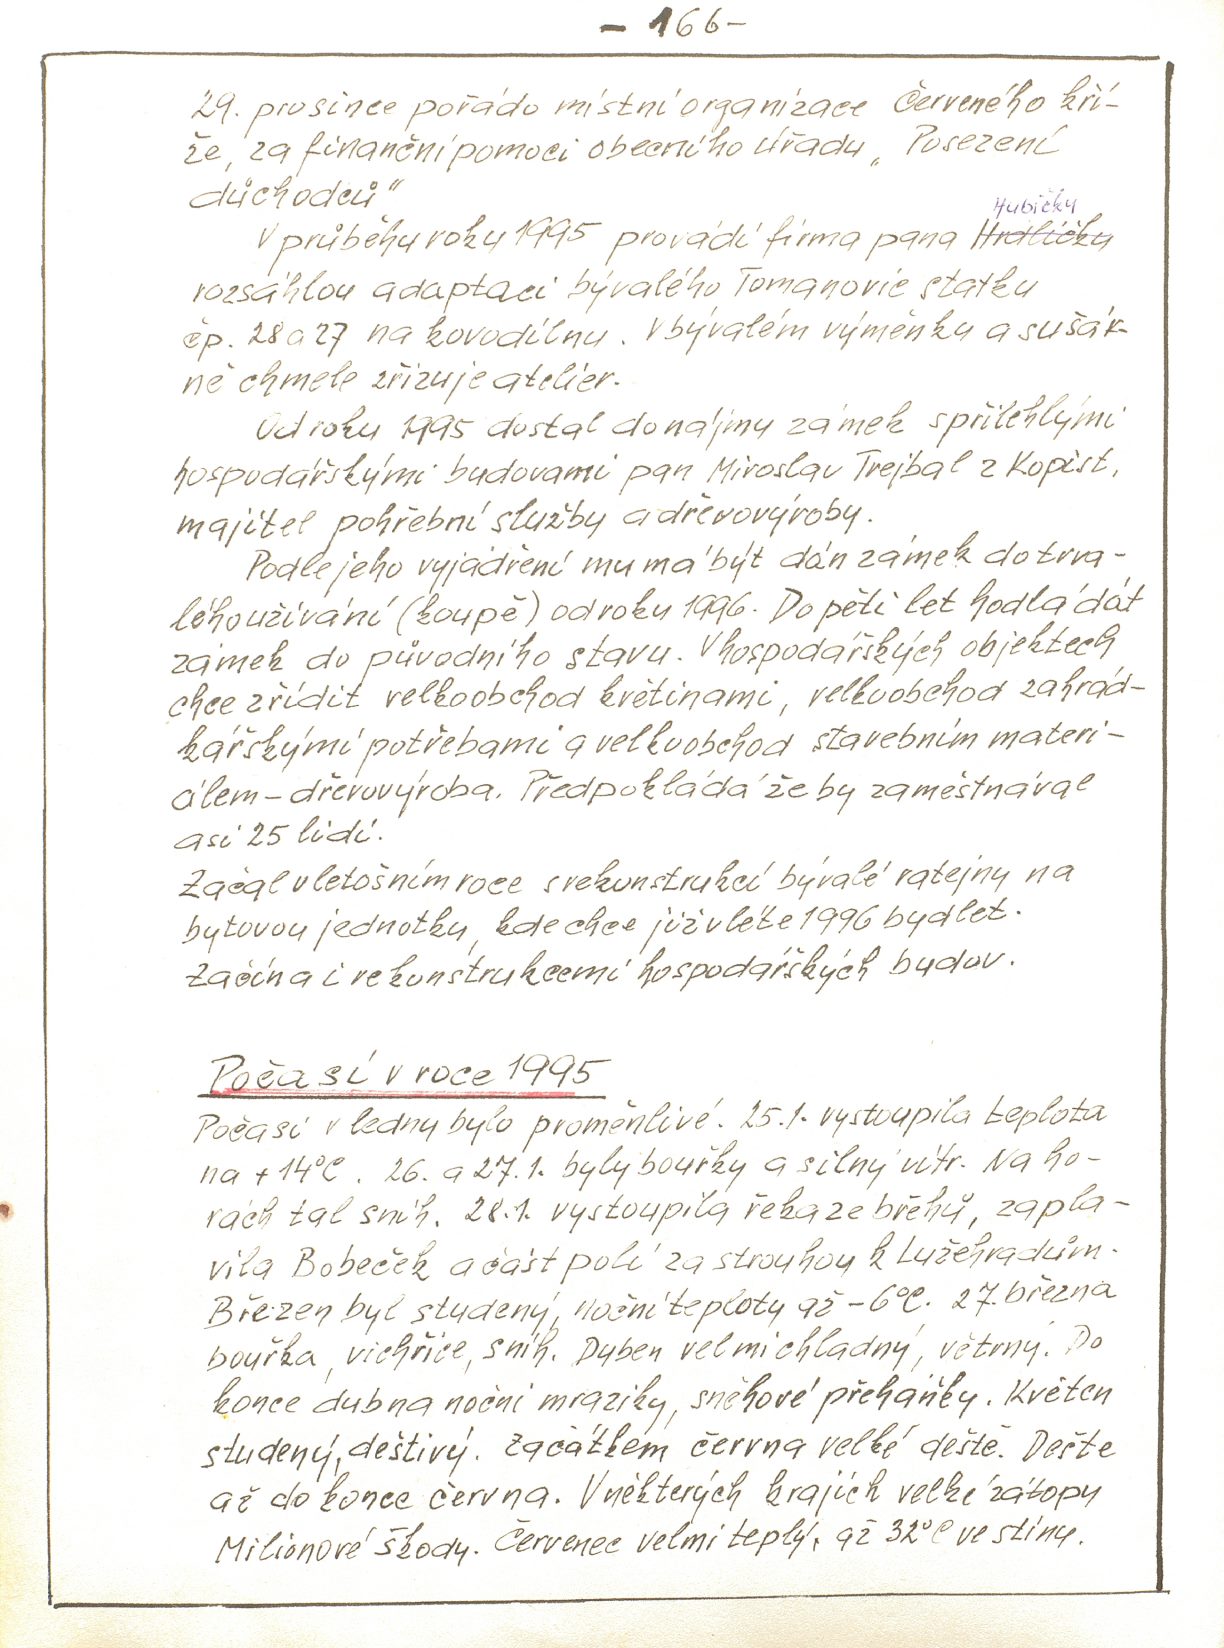 - 166 -
29. prosince pořádo místní organizace Červeného kří-
že, za finanční pomoci obecního úřadu „Posezení
důchodců"
Hubičky
V průběhu roku 1995 provádí firma pana Hrdličku
rozsáhlou adaptaci bývalého Tomanovic statku
čp. 28 a 27 na kovodílnu. V bývalém výměnku a sušár-
ně chmele zřizuje atelier.
Od roku 1995 dostal do nájmu zámek s přilehlými
hospodářskými budovami pan Miroslav Trejbal z Kopist,
majitel pohřební služby a dřevovýroby.
Podle jeho vyjádření mu má být dán zámek do trva-
lého užívání (koupě) od roku 1996. Do pěti let hodlá dát
zámek do původního stavu. V hospodářských objektech
chce zřídit velkoobchod květinami, velkoobchod zahrád-
kářskými potřebami a velkoobchod stavebním materi-
álem - dřevovýroba. Předpokládá že by zaměstnával
asi 25 lidí.
Začal v letošním roce s rekonstrukcí bývalé ratejny na
bytovou jednotku, kde chce již v létě 1996 bydlet.
Začíná i rekonstrukcemi hospodářských budov.
Počasí v roce 1995
Počasí v lednu bylo proměnlivé. 25.1. vystoupila teplota
na + 14°C. 26. a 27.1. byly bouřky a silný vítr. Na ho-
rách tál sníh. 28.1. vystoupila řeka ze břehů, zapla-
vila Bobeček a část polí za strouhou k Lužehradům.
Březen byl studený, noční teploty až -6°C. 27. března
bouřka, vichřice, sníh. Duben velmi chladný, větrný. Do
konce dubna noční mrazíky, sněhové přeháňky. Květen
studený, deštivý. Začátkem června velké deště. Dešte
až do konce června. V některých krajích velké zátopy
Milionové škody. Červenec velmi teplý, až 32°C ve stínu.